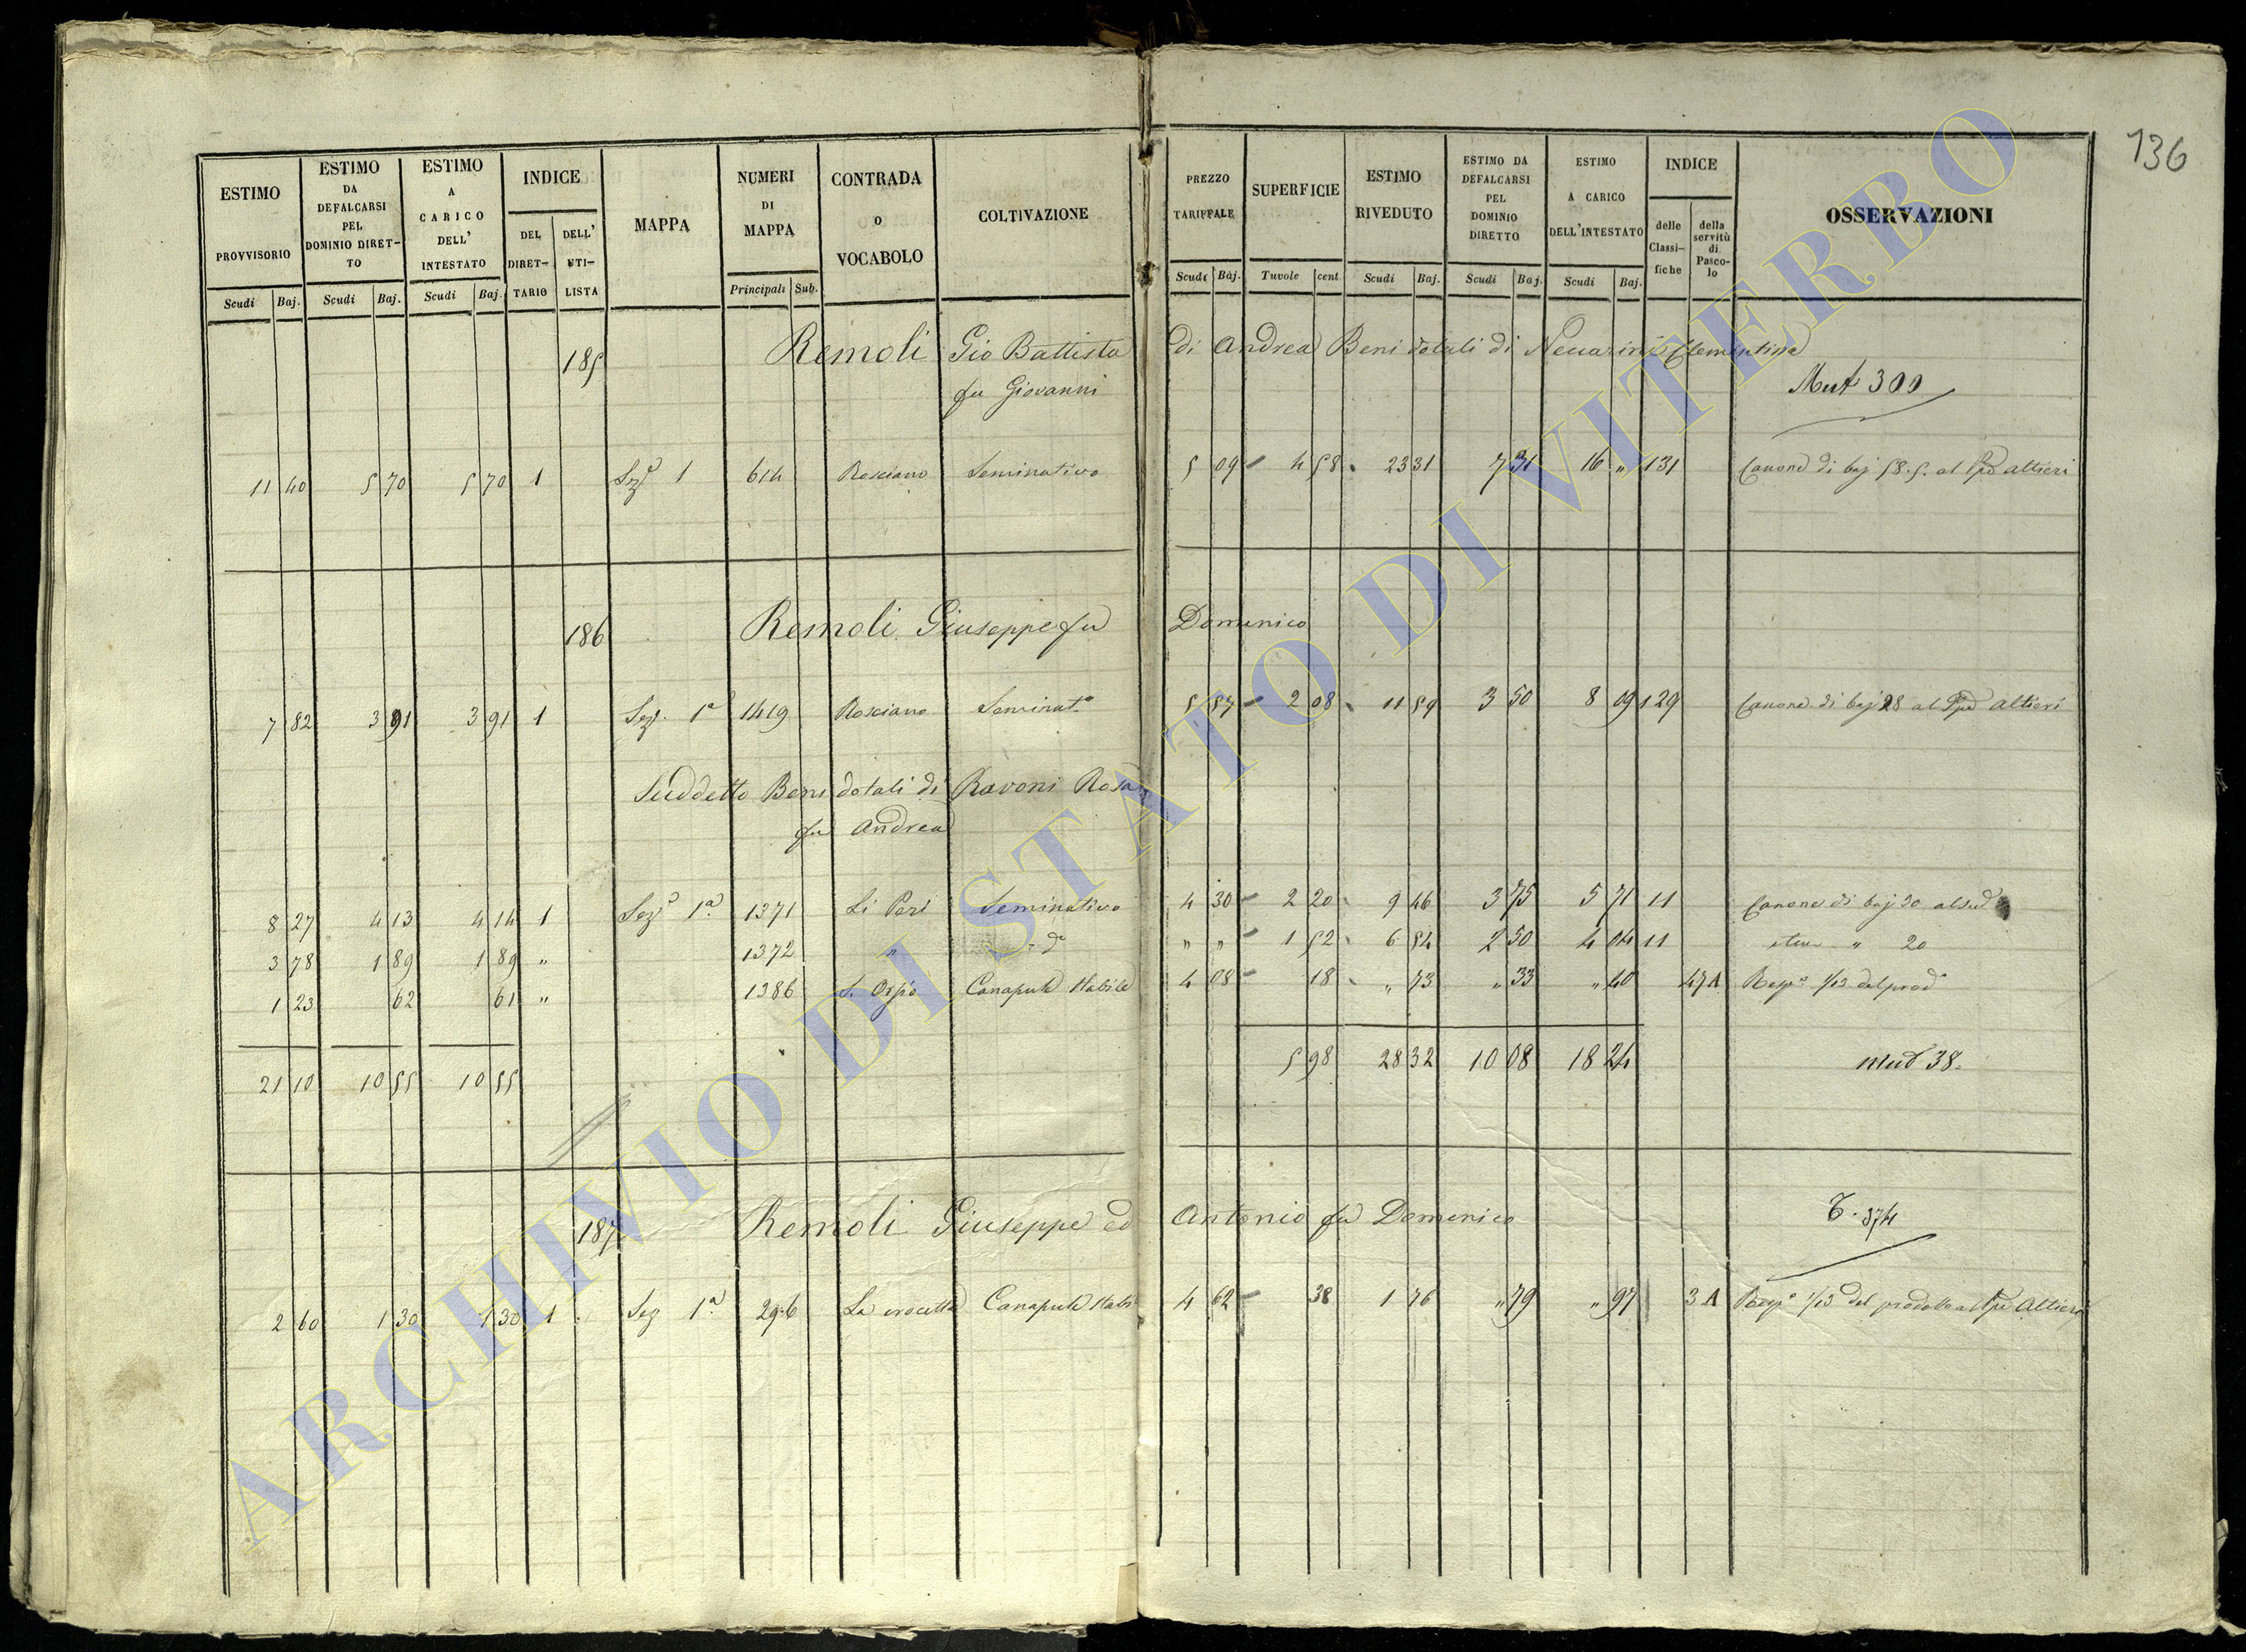 136
ESTIMO PROVVISORIO
ESTIMO DA DEFALCARSI PEL DOMINIO DIRET-TO
ESTIMO A CARICO DELL' INTESTATO
INDICE
DEL DIRET-TARIO
DELL' UTI-LISTA
MAPPA
NUMERI DI MAPPA
CONTRADA O VOCABOLO
COLTIVAZIONE
Scudi Baj. Scudi Baj. Scudi Baj. Principali Sub.
PREZZO TARIFFALE
SUPERFICIE
ESTIMO RIVEDUTO
ESTIMO DA DEFALCARSI PEL DOMINIO DIRETTO
ESTIMO A CARICO DELL'INTESTATO
INDICE
delle Classi-fiche
della servitù di Pasco-lo
OSSERVAZIONI
Scudi Baj. Tavole cent. Scudi Baj. Scudi Baj. Scudi Baj.
185 Remoli Gio Battista di Andrea Beni dotali di Clementina
fu Giovanni
Mut 300
11 40 5 70 5 70 1 Sez 1 614 Rosciano Seminativo 5 09 4 58 23 31 7 31 16 " 131 Canone di baj 58.5. al Ppe Altieri
186 Remoli Giuseppe fu Domenico
7 82 3 91 3 91 1 Sez. 1a 1419 Rosciano Seminato 5 57 2 08 11 59 3 50 8 09 129 Canone di baj 28 al Ppe Altieri
Suddetto Beni dotali di Ravoni Rosa
fu Andrea
8 27 4 13 4 14 1 Seze 1a 1371 Li Peri Seminativo 4 30 2 20 9 46 3 75 5 71 11 Canone di baj 30 al sud
3 78 1 89 1 89 " 1372 " do " " 1 52 6 54 2 50 4 04 11 " 20
1 23 62 61 " 1386 Canapule Stabile 4 08 18 " 73 " 33 " 40 47A Rispa 1/13 del prod
21 10 10 55 10 55 5 98 28 32 10 08 18 24 Mut 38.
187 Remoli Giuseppe ed Antonio fu Domenico
T. 374
2 60 1 30 1 30 1 Sez 1a 296 La crocetta Canapule Stabi 4 62 38 1 76 " 79 " 97 3 A 1/13 del prodotto al Ppe Altieri
ARCHIVIO DI STATO DI VITERBO